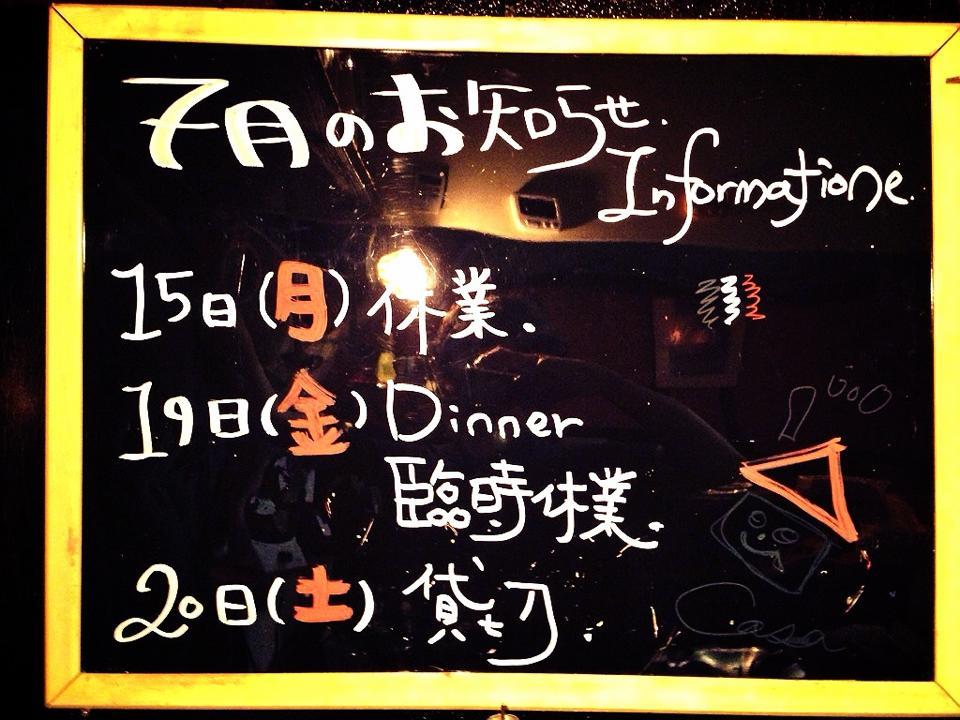 7月のお知らせ.
Informatione.
15日(月)休業.
19日(金)Dinner
臨時休業.
20日(土)貸切.
Casa